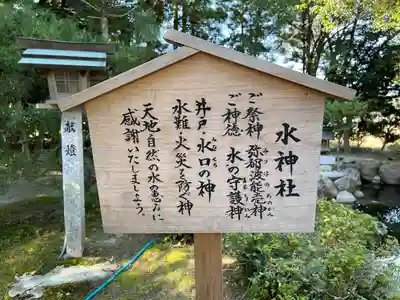 水神社
ご祭神 弥都波能売神
みづはのめのかみ
ご神徳 水の守護神
井戸・水口の神
水難・火災を防ぐ神
天地自然の水の恵みに
感謝いたしましょう。
献燈